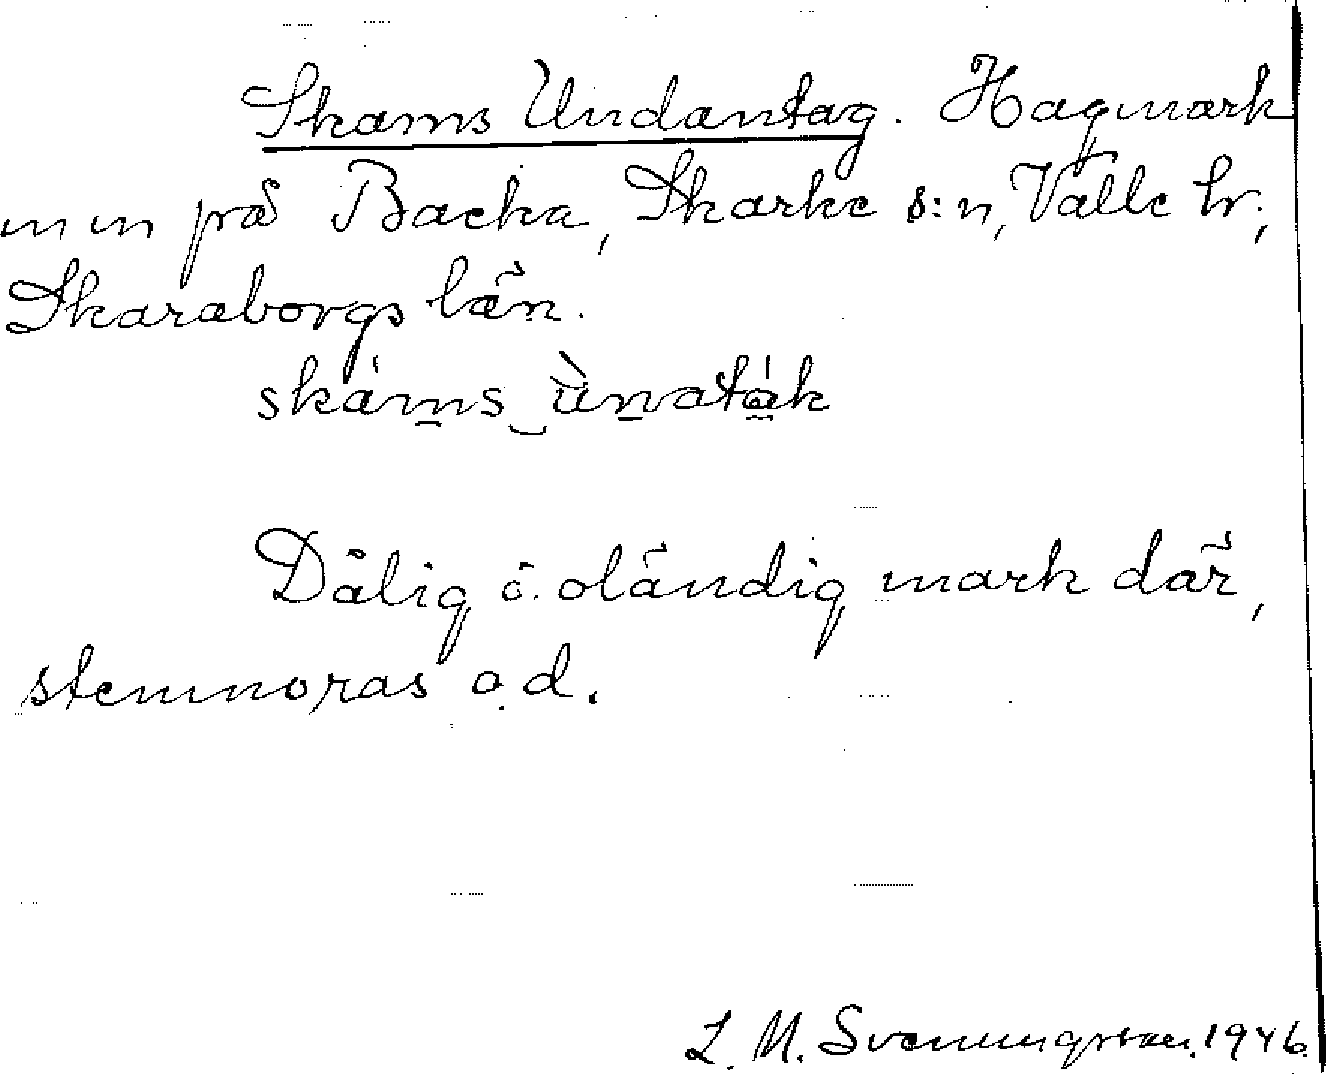 Skams Undantag. Hagmark
m m på Backa, Skarke s:n, Valle hr;
Skaraborgs län.
skáms ùnaták
Dålig o. oländig mark där,
stenmoras o.d.
L. M. Svenungsson. 1946.